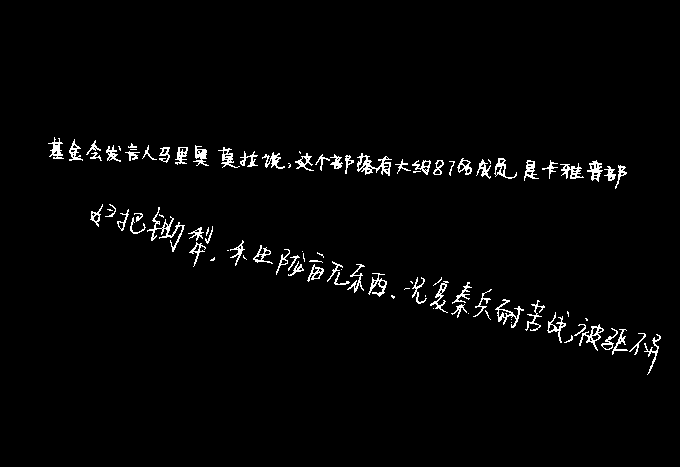 基金会发言人马里奥 莫拉说,这个部落有大约87名成员,是卡雅普部
妇把锄犁,禾生陇亩无东西、况复秦兵耐苦战,被驱不异